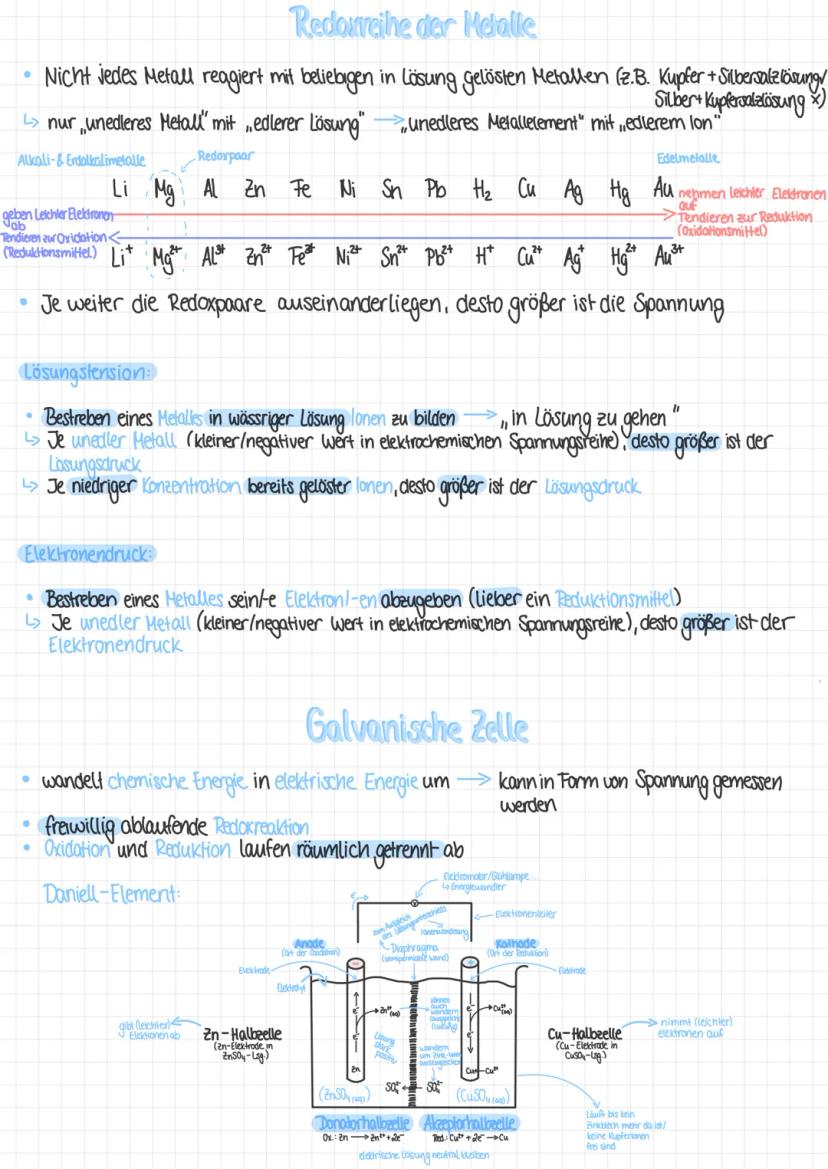 Redoxreihe der Metalle
• Nicht jedes Metall reagiert mit beliebigen in Lösung gelösten Metallen (z.B. Kupfer + Silbersalzlösung✓
Silber + Kupfersalzlösung x)
↳ nur „unedleres Metall" mit „edlerer Lösung" → „unedleres Metallelement" mit „edlerem Ion"
Alkali- & Erdalkalimetalle Redoxpaar Edelmetalle
Li Mg Al Zn Fe Ni Sn Pb H₂ Cu Ag Hg Au
nehmen leichter Elektronen
auf
Tendieren zur Reduktion
(Oxidationsmittel)
geben leichter Elektronen
ab
Tendieren zur Oxidation
(Reduktionsmittel)
Li⁺ Mg²⁺ Al³⁺ Zn²⁺ Fe³⁺ Ni²⁺ Sn²⁺ Pb²⁺ H⁺ Cu²⁺ Ag⁺ Hg²⁺ Au³⁺
• Je weiter die Redoxpaare auseinanderliegen, desto größer ist die Spannung
Lösungstension:
• Bestreben eines Metalles in wässriger Lösung Ionen zu bilden → „in Lösung zu gehen"
↳ Je unedler Metall (kleiner/negativer Wert in elektrochemischen Spannungsreihe), desto größer ist der
Lösungsdruck
↳ Je niedriger Konzentration bereits gelöster Ionen, desto größer ist der Lösungsdruck
Elektronendruck:
• Bestreben eines Metalles sein/-e Elektron/-en abzugeben (lieber ein Reduktionsmittel)
↳ Je unedler Metall (kleiner/negativer Wert in elektrochemischen Spannungsreihe), desto größer ist der
Elektronendruck
Galvanische Zelle
• wandelt chemische Energie in elektrische Energie um → kann in Form von Spannung gemessen
werden
• freiwillig ablaufende Redoxreaktion
• Oxidation und Reduktion laufen räumlich getrennt ab
Daniell-Element:
Elektromotor/Glühlampe...
↳ Energiewandler
e⁻
V
Elektronenleiter
zum Ausgleich
des Ladungsunterschieds
Ionenwanderung
Diaphragma
(semipermeable Wand)
Anode
(Ort der Oxidation)
Kathode
(Ort der Reduktion)
Elektrode
Elektrode
Elektrolyt
gibt (leichter)
Elektronen ab
Zn-Halbzelle
(Zn-Elektrode in
ZnSO₄-Lsg.)
e⁻
e⁻
Zn
Zn²⁺(aq)
Lösung
stark
positiv
können
auch
wandern
wandern
SO₄²⁻ ← SO₄²⁻
e⁻
e⁻
Cu²⁺(aq)
Cu ← Cu²⁺
Cu-Halbzelle
(Cu-Elektrode in
CuSO₄-Lsg.)
nimmt (leichter)
elektronen auf
(ZnSO₄(aq)) (CuSO₄(aq))
Donatorhalbzelle Akzeptorhalbzelle
Ox.: Zn → Zn²⁺ + 2e⁻ Red.: Cu²⁺ + 2e⁻ → Cu
elektrische Lösung neutral bleiben
Läuft bis kein
Zinkblech mehr da ist/
keine Kupferionen
frei sind